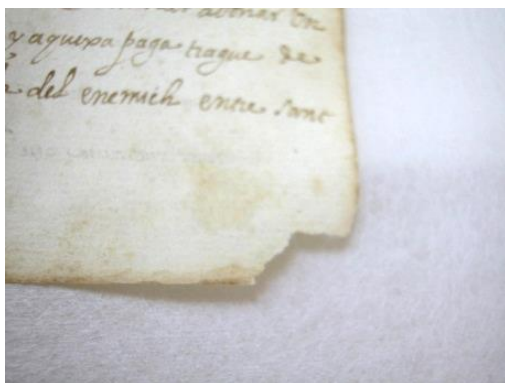 abonar en
y aquexa paga trague de
del enemich entre sant